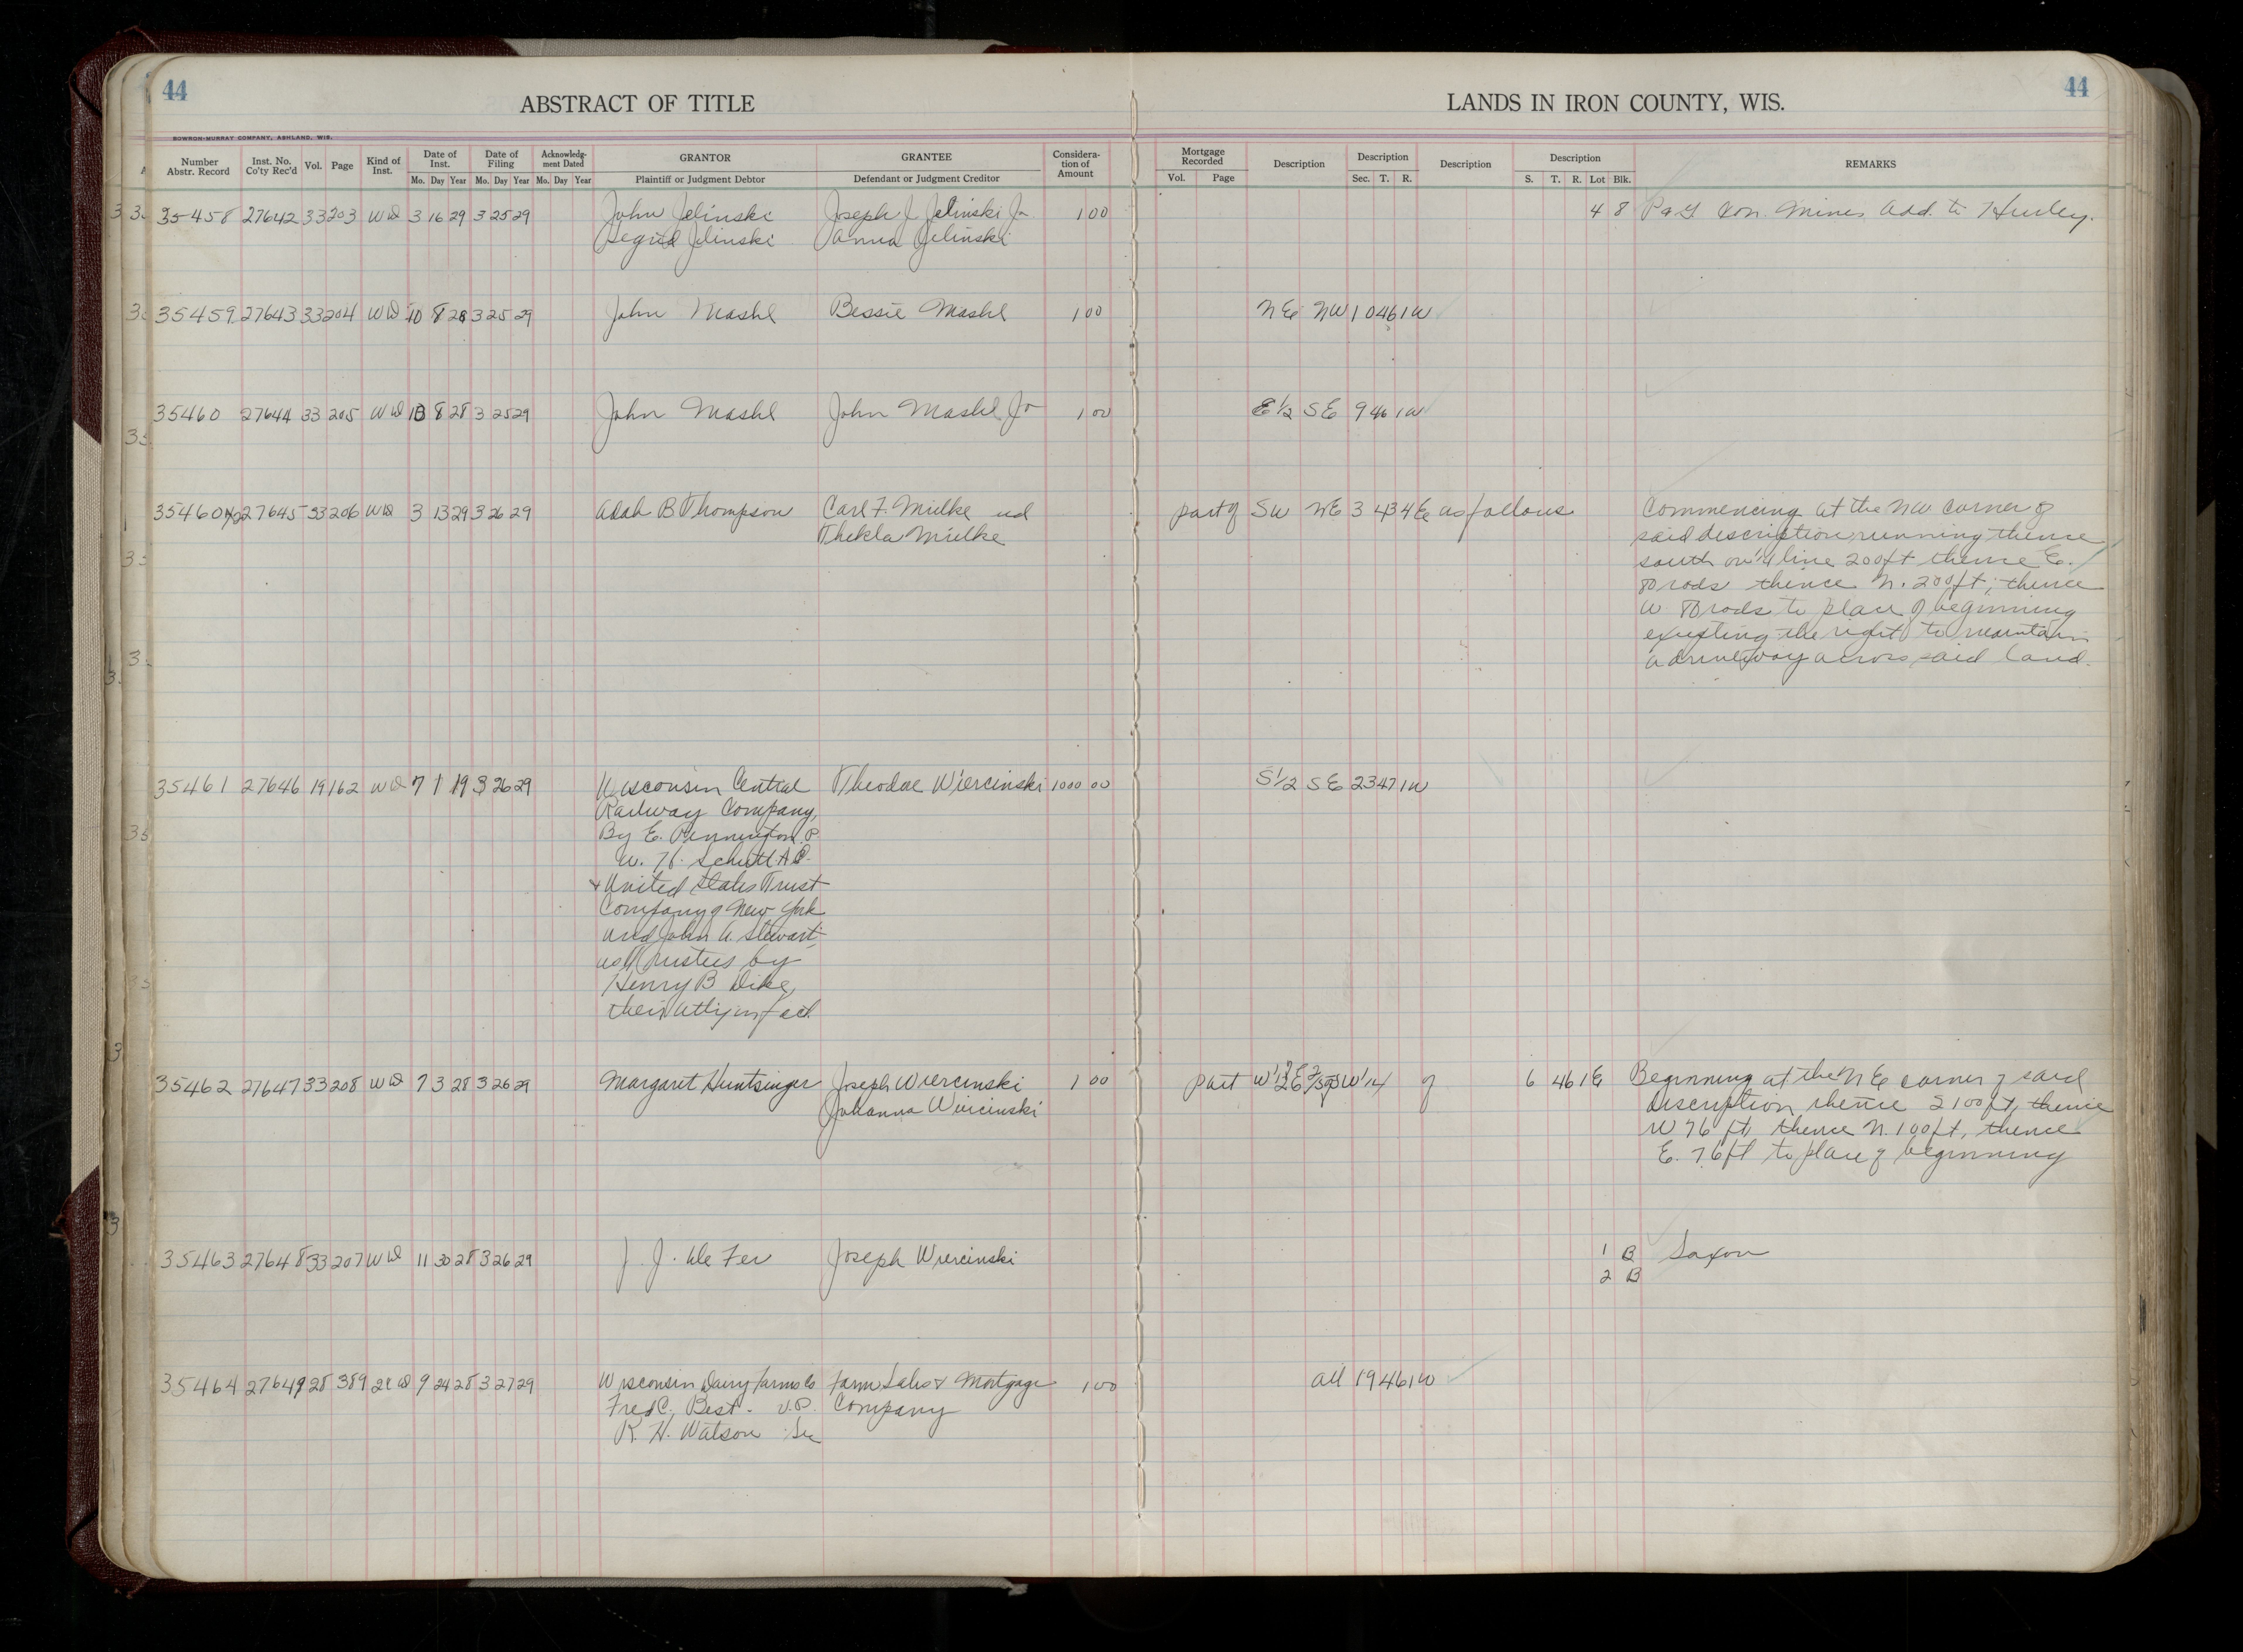 44
ABSTRACT OF TITLE
LANDS IN IRON COUNTY, WIS.
44
BOWRON-MURRAY COMPANY, ASHLAND, WIS.
Number Abstr. Record Inst. No. Co'ty Rec'd Vol. Page Kind of Inst. Date of Inst. Date of Filing Acknowledg-ment Dated GRANTOR GRANTEE Considera-tion of Amount Mortgage Recorded Description Description Description Description REMARKS
Mo. Day Year Mo. Day Year Mo. Day Year Plaintiff or Judgment Debtor Defendant or Judgment Creditor Vol. Page Sec. T. R. S. T. R. Lot Blk.
35458 27642 33 203 WD 3 16 29 3 25 29 John Jelinski Joseph J Jelinski Jr 1 00 4 8 Mines Add. to Hurley.
Segrid Jelinski Anna Jelinski
35459 27643 33 204 WD 10 8 28 3 25 29 John Mashl Bessie Mashl 1 00 NE NW 10 46 1W
35460 27644 33 205 WD 10 8 28 3 25 29 John Mashl John Mashl Jr 1 00 E 1/2 SE 9 46 1W
35460 1/2 27645 33 206 WD 3 13 29 3 26 29 Adah B Thompson Carl F. Mielke and part of SW NE 3 43 4E as follows Commencing at the NW corner of
Thekla Mielke said description running thence
south on 1/4 line 200 ft thence E.
80 rods thence N. 200 ft; thence
W 80 rods to place of beginning
excepting the right to maintain
a driveway across said land.
35461 27646 19 162 WD 7 1 19 3 26 29 Wisconsin Central Theodore Wiercinski 1000 00 S 1/2 SE 23 47 1W
Railway Company,
By E. Pennington P.
W. H. Schutt A.S.
+ United States Trust
Company of New York
and John A. Stewart,
as Trustees by
Henry B Dike,
their Atty in fact
35462 27647 33 208 WD 7 3 28 3 26 29 Margaret Huntsinger Joseph Wiercinski 1 00 part of 6 46 1E Beginning at the NE corner of said
Johanna Wiercinski description, thence S 100 ft, thence
W 76 ft, thence N. 100 ft, thence
E. 76 ft to place of beginning
35463 27648 33 207 WD 11 30 28 3 26 29 J. J. De Fer Joseph Wiercinski 1 B Saxon
2 B
35464 27649 28 389 9 24 28 3 27 29 Wisconsin Dairy Farms Co Farm Sales & Mortgage 1 00 all 19 46 1W
Fred C. Best. V.P. Company
R. H. Watson Sec